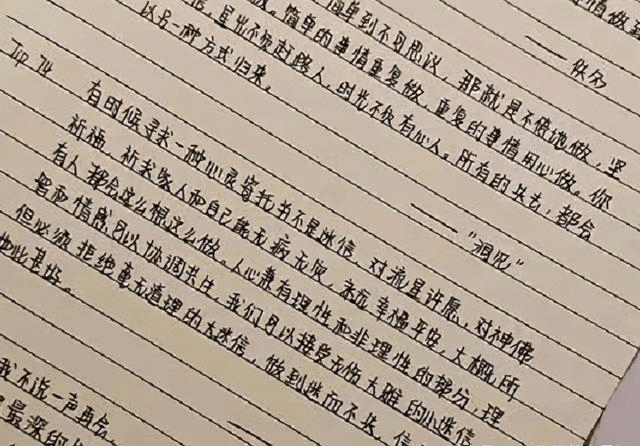 情做到
单到不可思议，那就是不停地做，坚
做。简单的事情重复做，重复的事情用心做。你
——佚名
星光不负赶路人，时光不负有心人。所有的失去，都会
以另一种方式归来。
——"湘见"
Top 74
有时候寻求一种心灵寄托并不是迷信，对流星许愿，对神佛
祈福，祈求家人和自己能无病无灾，永远幸福平安，大概所
有人都会这么想这么做。人心兼有理性和非理性的部分，理
智和情感可以协调共生，我们可以接受无伤大雅的小迷信
但必须拒绝毫无道理的大迷信，做到迷而不失，信
如此甚好。
我不说一声再会
最深的